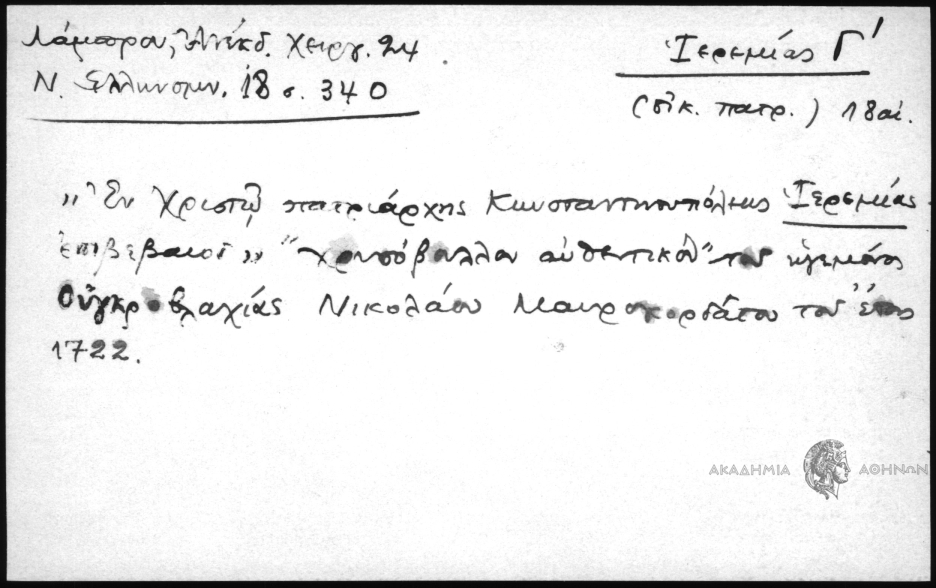 Λάμπρου, Ἀνέκδ. Χειργ. 24
Ν. Ἑλληνομν. 18 σ. 340
Ἱερεμίας Γ΄
(οἰκ. πατρ.) 18 αἰ.
„Ἐν Χριστῷ πατριάρχης Κωνσταντινουπόλεως Ἱερεμίας
ἐπιβεβαιοῖ„ "χρυσόβουλλον αὐθεντικὸν" τοῦ ἡγεμόνος
Οὐγκροβλαχίας Νικολάου Μαυροκορδάτου τοῦ ἔτους
1722.
ΑΚΑΔΗΜΙΑ ΑΘΗΝΩΝ